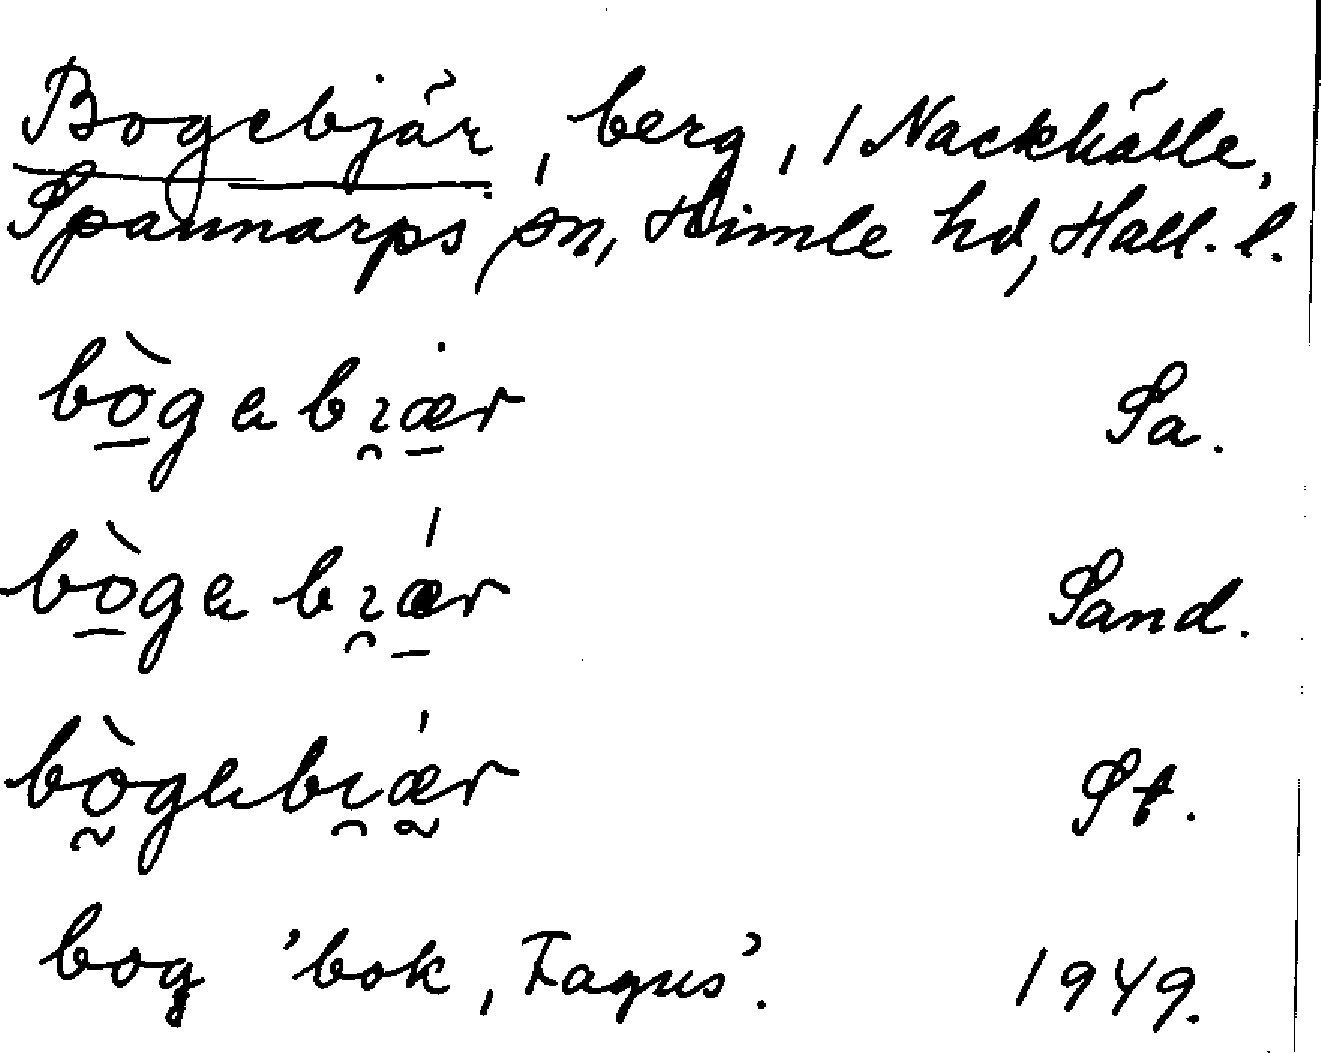 Bogebjär, berg, / Nackhälle,
Spannarps sn, Himle hd, Hall. l.
bò̲gebı̯æ̲r Sa.
bò̲gebı̯ǽ̲r Sand.
bò̰gebı̯ǽ̰r St.
bog 'bok, Fagus'. 1949.